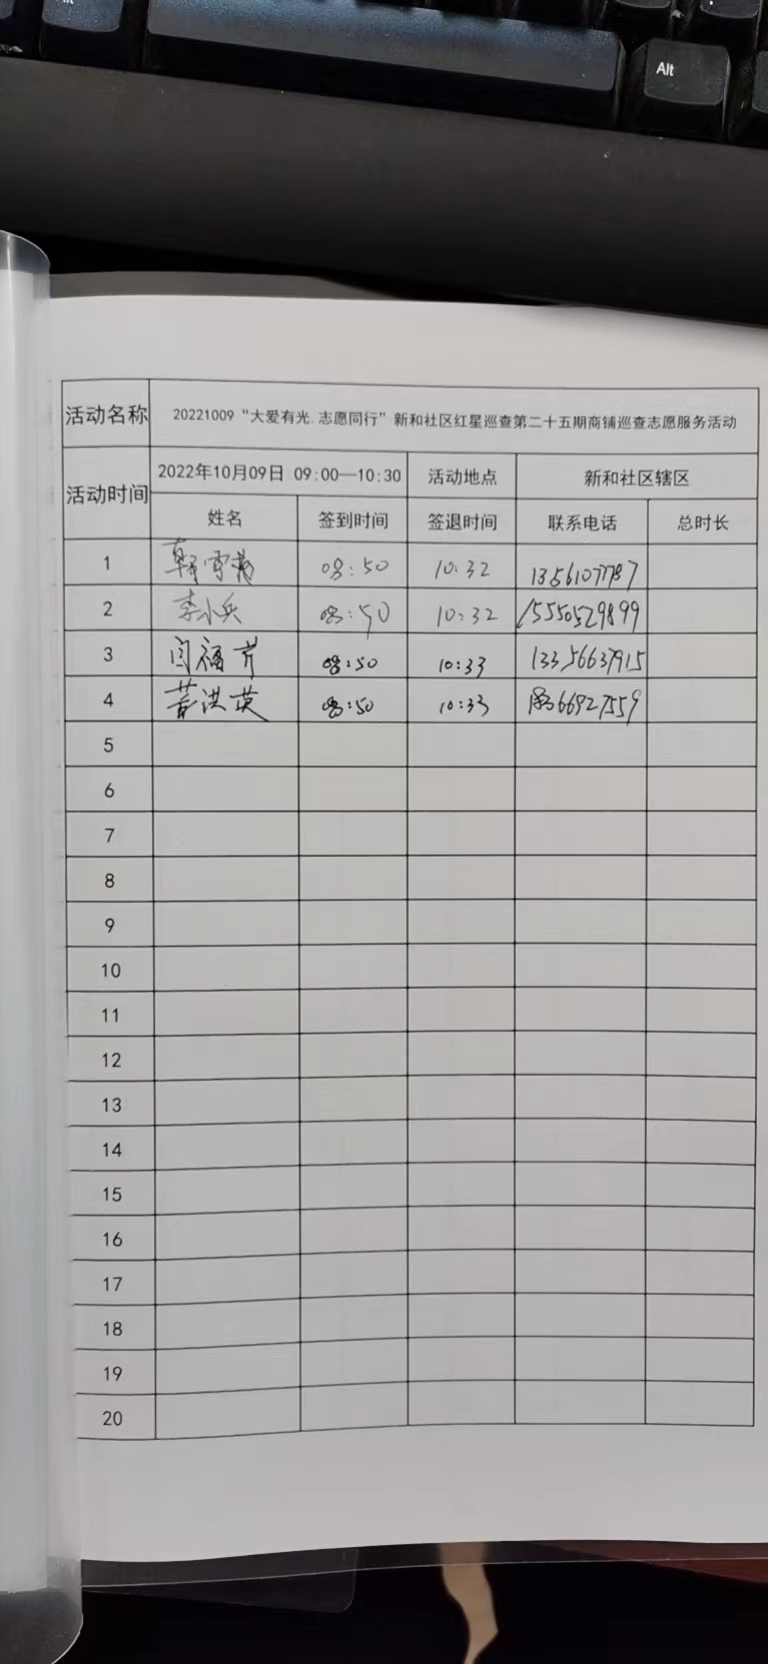 Alt
活动名称 20221009“大爱有光.志愿同行”新和社区红星巡查第二十五期商铺巡查志愿服务活动
活动时间 2022年10月09日 09:00—10:30 活动地点 新和社区辖区
姓名 签到时间 签退时间 联系电话 总时长
1 08:50 10:32 13561077787
2 李小兵 08:50 10:32 15550529899
3 闫福芹 08:50 10:33 13356637915
4 黄洪英 08:50 10:33
5
6
7
8
9
10
11
12
13
14
15
16
17
18
19
20